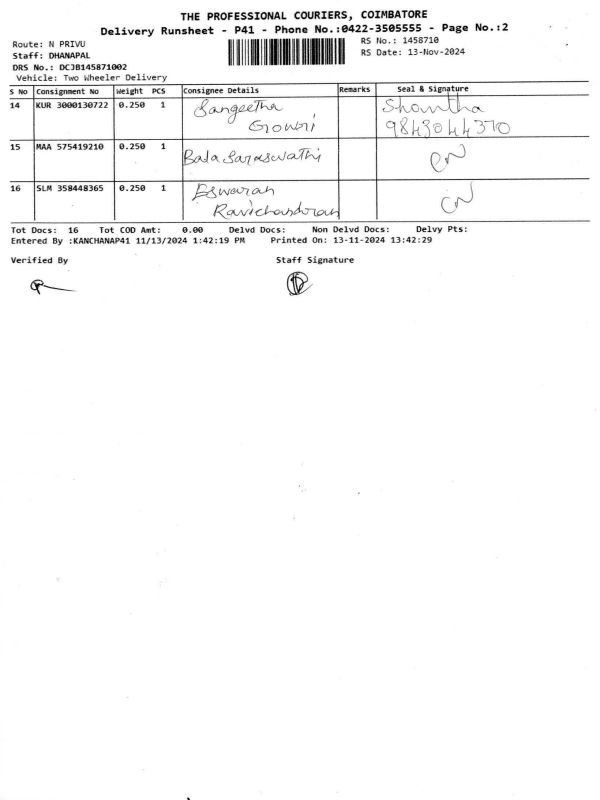 THE PROFESSIONAL COURIERS, COIMBATORE
Delivery Runsheet - P41 - Phone No.:0422-3505555 - Page No.:2
Route: N PRIVU
RS No.: 1458710
Staff: DHANAPAL
RS Date: 13-Nov-2024
DRS No.: DCJB145871002
Vehicle: Two Wheeler Delivery
S No Consignment No Weight PCS Consignee Details Remarks Seal & Signature
14 KUR 3000130722 0.250 1 Sangeetha Shantha
Gowri 9843044370
15 MAA 575419210 0.250 1 Bala Saraswathi CN
16 SLM 358448365 0.250 1 Eswaran CN
Ravichandran
Tot Docs: 16 Tot COD Amt: 0.00 Delvd Docs: Non Delvd Docs: Delvy Pts:
Entered By :KANCHANAP41 11/13/2024 1:42:19 PM Printed On: 13-11-2024 13:42:29
Verified By Staff Signature